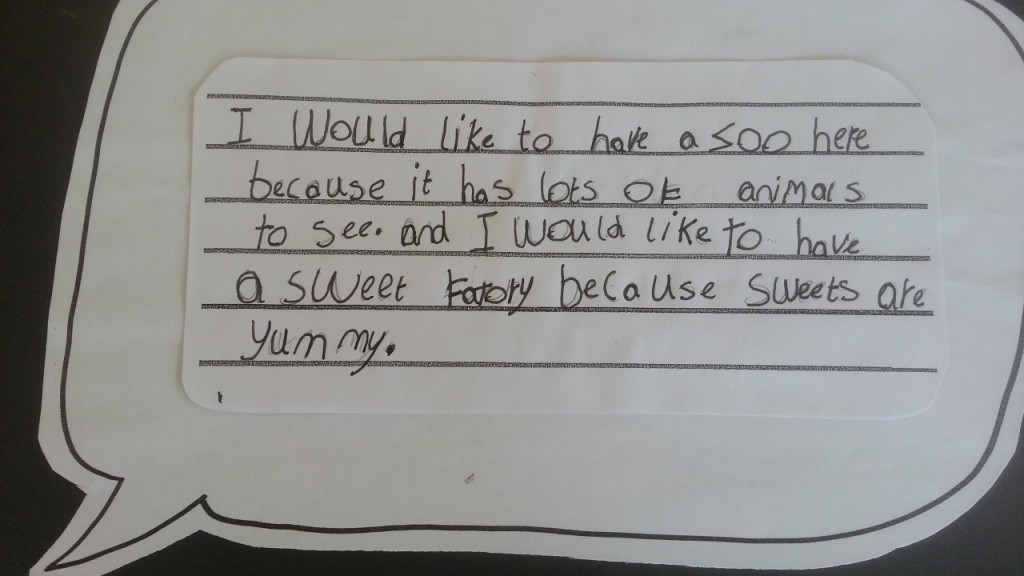 I would like to have a soo here
because it has lots of animals
to see. and I would like to have
a sweet Fatory because sweets are
yummy.